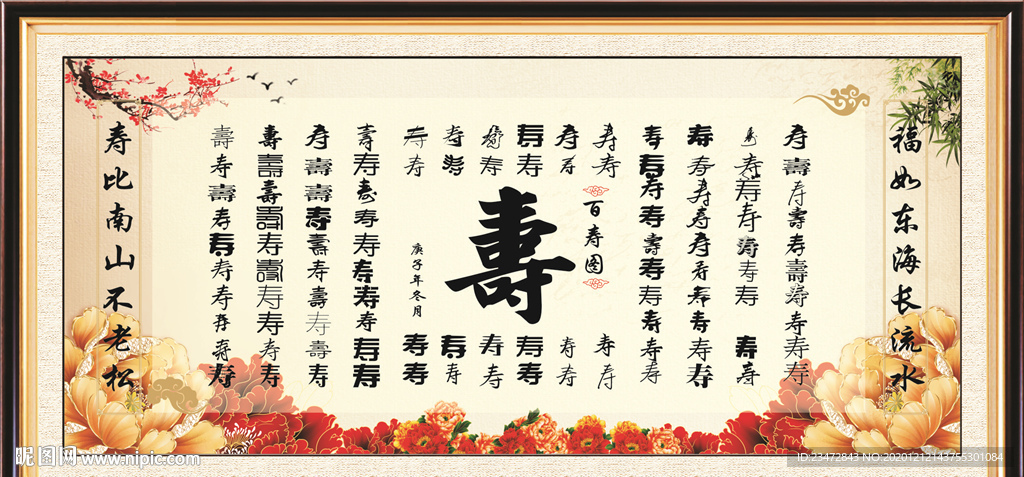 福如东海长流水
寿壽寿壽寿壽寿寿寿寿
寿寿寿寿寿寿寿寿寿
寿寿寿寿寿寿寿寿寿寿
寿寿寿寿壽寿寿寿寿寿
寿寿
百寿图
寿寿
寿寿
寿寿
寿寿
寿寿
壽
寿寿
寿寿
寿寿
寿寿
寿寿
寿寿
庚子年冬月
寿寿
壽寿寿寿寿寿寿寿寿寿
寿壽壽寿壽寿壽寿壽寿
壽壽壽壽寿壽寿寿寿寿
壽寿壽寿寿寿寿寿寿寿
寿比南山不老松
昵图网 www.nipic.com
ID:23472843 NO:20201212143755301084